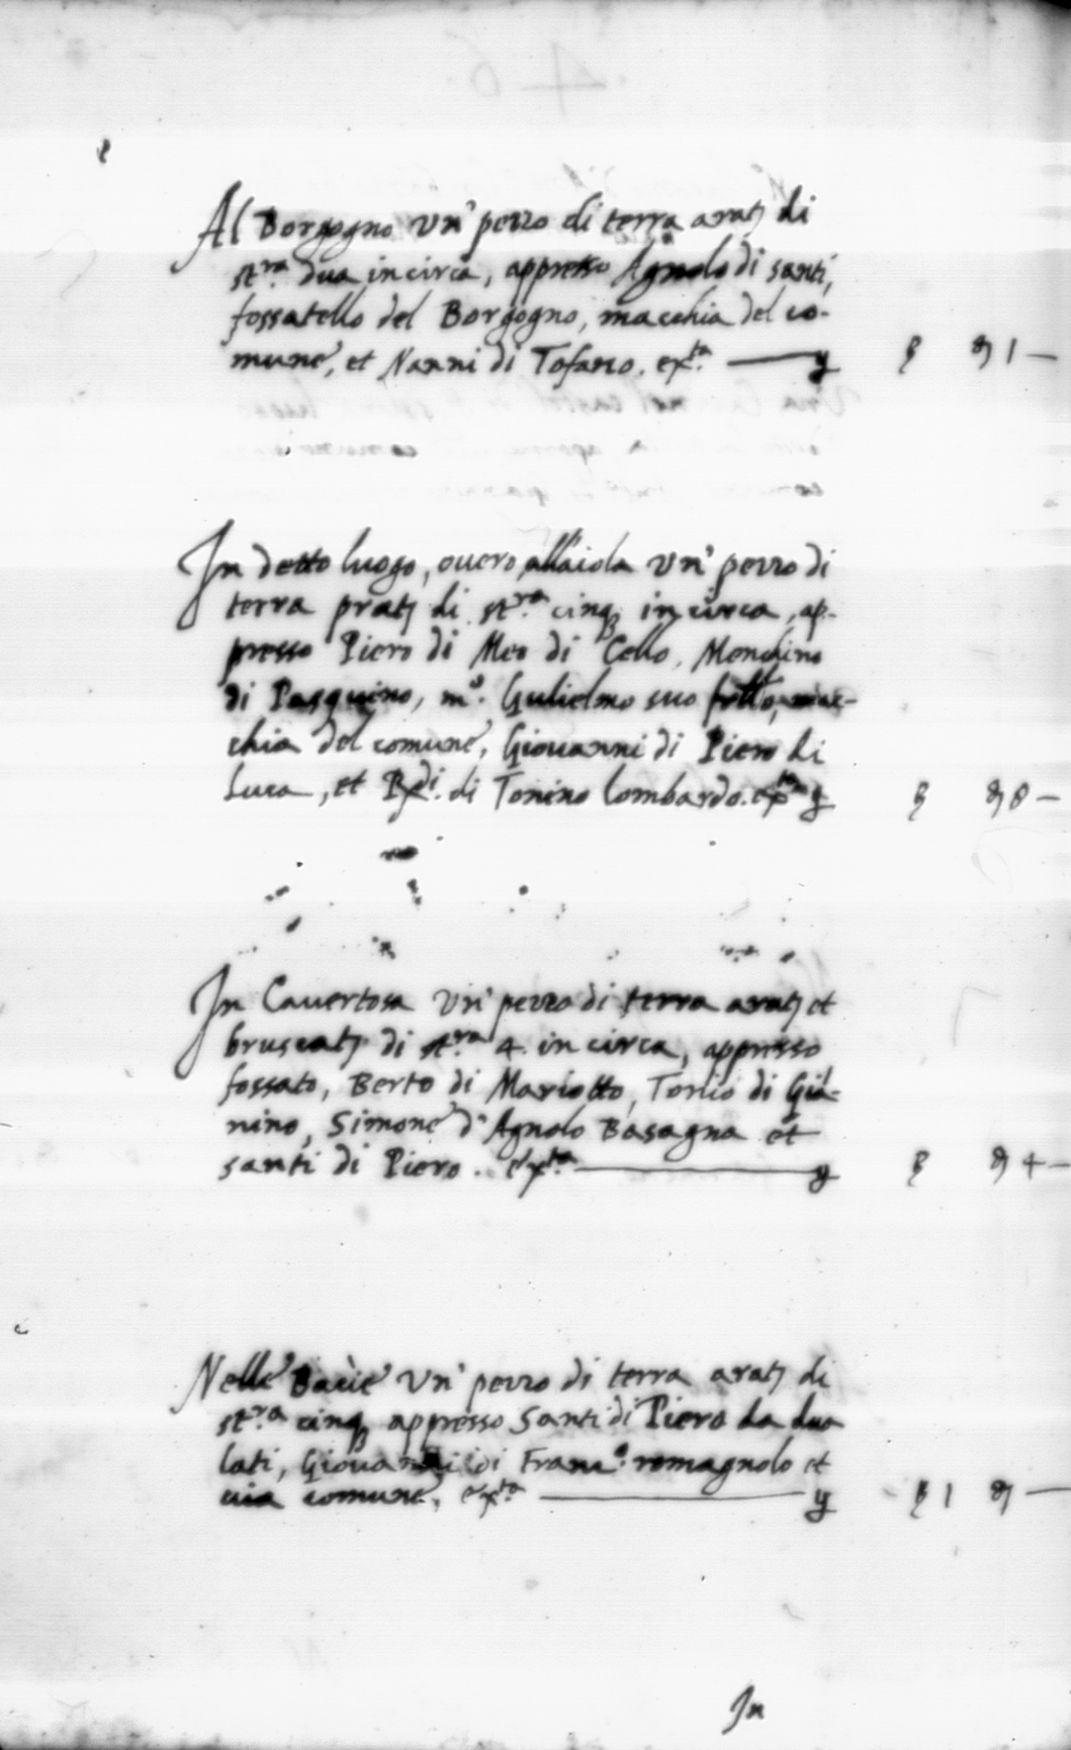 Al Borgogno un' pezzo di terra arat. di
st.ra dua in circa, appresso Agnolo di santi,
fossatello del Borgogno, macchia del co-
mune, et Nanni di Tofano. ex.ta
1 —
In detto luogo, overo all'aiola un' pezzo di
terra prat. di st.ra cinq. in circa, ap-
presso Piero di Meo di Cello, Menchino
di Pasquino, m.o Gulielmo suo frtto, mac-
chia del comune, Giovanni di Piero di
Luca, et di Tonino lombardo. ex.ta
8 —
In Cavertosa un' pezzo di terra arat. et
bruscat. di st.ra 4. in circa, appresso
fossato, Berto di Mariotto, Tonio di Gia-
nino, Simone d'Agnolo Basagna et
santi di Piero. ex.ta
4 —
Nelle un' pezzo di terra arat. di
st.ra cinq. appresso Santi di Piero da dua
lati, Giovanni di Franc.o romagnolo et
via comune, ex.ta
1 —
In